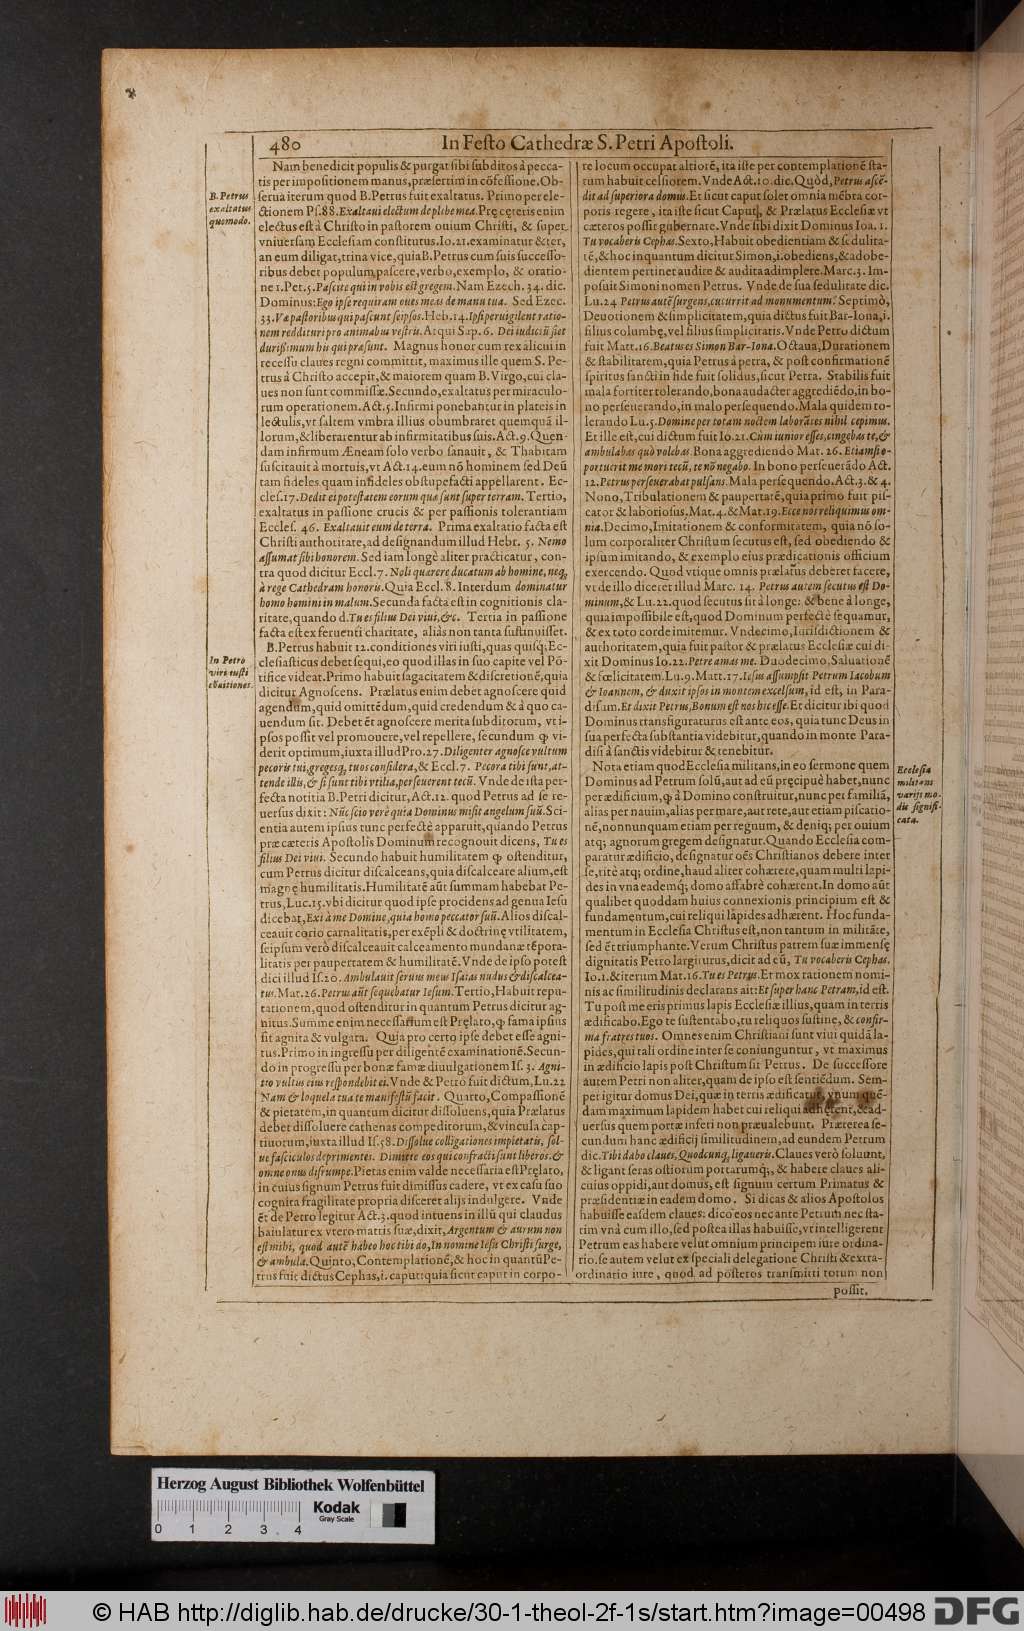 480 In Festo Cathedræ S. Petri Apostoli.
Nam benedicit populis & purgat sibi subditos à pecca-
tis per impositionem manus, præsertim in cõfessione. Ob-
serua iterum quod B. Petrus fuit exaltatus. Primo per ele-
ctionem Ps. 88. Exaltaui electum de plebe mea. Pręceteris enim
electus est à Christo in pastorem ouium Christi, & super
vniuersam Ecclesiam constitutus. Io. 21. examinatur & ter,
an eum diligat, trina vice, quia B. Petrus cum suis successo-
ribus debet populum pascere, verbo, exemplo, & oratio-
ne 1. Pet. 5. Pascite qui in vobis est gregem. Nam Ezech. 34. dic.
Dominus: Ego ipse requiram oues meas de manu tua. Sed Ezec.
33. Væ pastoribus qui pascunt seipsos. Heb. 14. Ipsi peruigilent ratio-
nem reddituri pro animabus vestris. Atqui Sap. 6. Dei iudiciũ fiet
durissimum his qui præsunt. Magnus honor cum rex alicui in
recessu claues regni committit, maximus ille quem S. Pe-
trus à Christo accepit, & maiorem quam B. Virgo, cui cla-
ues non sunt commissæ. Secundo, exaltatus per miraculo-
rum operationem. Act. 5. Infirmi ponebantur in plateis in
lectulis, vt saltem vmbra illius obumbraret quemquã il-
lorum, & liberarentur ab infirmitatibus suis. Act. 9. Quen-
dam infirmum Æneam solo verbo sanauit, & Thabitam
suscitauit à mortuis, vt Act. 14. eum nõ hominem sed Deũ
tam fideles quam infideles obstupefacti appellarent. Ec-
cles. 17. Dedit ei potestatem eorum quæ sunt super terram. Tertio,
exaltatus in passione crucis & per passionis tolerantiam
Eccles. 46. Exaltauit eum de terra. Prima exaltatio facta est
Christi authoritate, ad designandum illud Hebr. 5. Nemo
assumat sibi honorem. Sed iam longè aliter practicatur, con-
tra quod dicitur Eccl. 7. Noli quærere ducatum ab homine, neq;
à rege Cathedram honoris. Quia Eccl. 8. Interdum dominatur
homo homini in malum. Secunda facta est in cognitionis cla-
ritate, quando d. Tu es filius Dei viui, &c. Tertia in passione
facta est ex feruenti charitate, aliàs non tanta sustinuisset.
B. Petrus habuit 12. conditiones viri iusti, quas quisq; Ec-
clesiasticus debet sequi, eo quod illas in suo capite vel Põ-
tifice videat. Primo habuit sagacitatem & discretionẽ, quia
dicitur Agnoscens. Prælatus enim debet agnoscere quid
agendum, quid omittẽdum, quid credendum & à quo ca-
uendum sit. Debet ẽt agnoscere merita subditorum, vt i-
psos possit vel promouere, vel repellere, secundum ꝙ vi-
derit optimum, iuxta illud Pro. 27. Diligenter agnosce vultum
pecoris tui, gregesq; tuos considera, & Eccl. 7. Pecora tibi sunt, at-
tende illis, & si sunt tibi vtilia, perseuerent tecũ. Vnde de ista per-
fecta notitia B. Petri dicitur, Act. 12. quod Petrus ad se re-
uersus dixit: Nũc scio verè quia Dominus misit angelum suũ. Sci-
entia autem ipsius tunc perfectè apparuit, quando Petrus
præ cæteris Apostolis Dominum recognouit dicens, Tu es
filius Dei viui. Secundo habuit humilitatem ꝙ ostenditur,
cum Petrus dicitur discalceans, quia discalceare alium, est
magnę humilitatis. Humilitatẽ aũt summam habebat Pe-
trus, Luc. 15. vbi dicitur quod ipse procidens ad genua Iesu
dicebat, Exi à me Domine, quia homo peccator suũ. Alios discal-
ceauit corio carnalitatis, per exẽpli & doctrinę vtilitatem,
seipsum verò discalceauit calceamento mundanæ tẽpora-
litatis per paupertatem & humilitatẽ. Vnde de ipso potest
dici illud Is. 20. Ambulauit seruus meus Isaias nudus & discalcea-
tus. Mat. 26. Petrus aũt sequebatur Iesum. Tertio, Habuit repu-
tationem, quod ostenditur in quantum Petrus dicitur ag-
nitus. Summe enim necessarium est Pręlato, ꝙ fama ipsius
sit agnita & vulgata. Quia pro certo ipse debet esse agni-
tus. Primo in ingressu per diligentẽ examinationẽ. Secun-
do in progressu per bonæ famæ diuulgationem Is. 3. Agni-
tio vultus eius respondebit ei. Vnde & Petro fuit dictum, Lu. 22
Nam & loquela tua te manifestũ facit. Quarto, Compassionẽ
& pietatem, in quantum dicitur dissoluens, quia Prælatus
debet dissoluere cathenas compeditorum, & vincula cap-
tiuorum, iuxta illud Is. 58. Dissolue colligationes impietatis, sol-
ue fasciculos deprimentes. Dimitte eos qui confracti sunt liberos, &
omne onus disrumpe. Pietas enim valde necessaria est Pręlato,
in cuius signum Petrus fuit dimissus cadere, vt ex casu suo
cognita fragilitate propria disceret alijs indulgere. Vnde
ẽt de Petro legitur Act. 3. quod intuens in illũ qui claudus
baiulatur ex vtero matris suæ, dixit, Argentum & aurum non
est mihi, quod autẽ habeo hoc tibi do, In nomine Iesu Christi surge,
& ambula. Quinto, Contemplationẽ, & hoc in quantũ Pe-
trus fuit dictus Cephas, i. caput: quia sicut caput in corpo-
B. Petrus
exaltatus
quomodo.
In Petro
viri iusti
cõditiones.
re locum occupat altiorẽ, ita iste per contemplationẽ sta-
tum habuit celsiorem. Vnde Act. 10. dic. Quòd, Petrus ascẽ-
dit ad superiora domus. Et sicut caput solet omnia mẽbra cor-
poris regere, ita iste sicut Caput, & Prælatus Ecclesiæ vt
cæteros possit gubernare. Vnde sibi dixit Dominus Ioa. 1.
Tu vocaberis Cephas. Sexto, Habuit obedientiam & sedulita-
tẽ, & hoc inquantum dicitur Simon, i. obediens, & ad obe-
dientem pertinet audire & audita adimplere. Marc. 3. Im-
posuit Simoni nomen Petrus. Vnde de sua sedulitate dic.
Lu. 24 Petrus autẽ surgens, cucurrit ad monumentum. Septimò,
Deuotionem & simplicitatem, quia dictus fuit Bar-Iona, i.
filius columbę, vel filius simplicitatis. Vnde Petro dictum
fuit Matt. 16. Beatus es Simon Bar-Iona. Octaua, Durationem
& stabilitatem, quia Petrus à petra, & post confirmationẽ
spiritus sancti in fide fuit solidus, sicut Petra. Stabilis fuit
mala fortiter tolerando, bona audacter aggrediẽdo, in bo-
no perseuerando, in malo persequendo. Mala quidem to-
lerando Lu. 5. Domine per totam noctem laborãtes nihil cepimus.
Et ille est, cui dictum fuit Io. 21. Cùm iunior esses, cingebas te, &
ambulabas quò volebas. Bona aggrediendo Mat. 26. Etiamsi o-
portuerit me mori tecũ, te nõ negabo. In bono perseuerãdo Act.
12. Petrus perseuerabat pulsans. Mala persequendo. Act. 3. & 4.
Nono, Tribulationem & paupertatẽ, quia primo fuit pis-
cator & laboriosus. Mat. 4. & Mat. 19. Ecce nos reliquimus om-
nia. Decimo, Imitationem & conformitatem, quia nõ so-
lum corporaliter Christum secutus est, sed obediendo &
ipsum imitando, & exemplo eius prædicationis officium
exercendo. Quod vtique omnis prælatus deberet facere,
vt de illo diceret illud Marc. 14. Petrus autem secutus est Do-
minum, & Lu. 22. quod secutus sit à longe: & bene à longe,
quia impossibile est, quod Dominum perfectè sequamur,
& ex toto corde imitemur. Vndecimo, Iurisdictionem &
authoritatem, quia fuit pastor & prælatus Ecclesiæ cui di-
xit Dominus Io. 22. Petre amas me. Duodecimo, Saluationẽ
& fœlicitatem. Lu. 9. Matt. 17. Iesus assumpsit Petrum Iacobum
& Ioannem, & duxit ipsos in montem excelsum, id est, in Para-
disum. Et dixit Petrus, Bonum est nos hic esse. Et dicitur ibi quod
Dominus transfiguraturus est ante eos, quia tunc Deus in
sua perfecta substantia videbitur, quando in monte Para-
disi à sanctis videbitur & tenebitur.
Nota etiam quod Ecclesia militans, in eo sermone quem
Dominus ad Petrum solũ, aut ad eũ pręcipuè habet, nunc
per ædificium, ꝙ à Domino construitur, nunc per familiã,
alias per nauim, alias per mare, aut rete, aut etiam piscatio-
nẽ, nonnunquam etiam per regnum, & deniq; per ouium
atq; agnorum gregem designatur. Quando Ecclesia com-
paratur ædificio, designatur oẽs Christianos debere inter
se, ritè atq; ordine, haud aliter cohærere, quam multi lapi-
des in vna eademq; domo affabrè cohærent. In domo aũt
qualibet quoddam huius connexionis principium est &
fundamentum, cui reliqui lapides adhærent. Hoc funda-
mentum in Ecclesia Christus est, non tantum in militãte,
sed ẽt triumphante. Verum Christus patrem suæ immensę
dignitatis Petro largiturus, dicit ad eũ, Tu vocaberis Cephas.
Io. 1. & iterum Mat. 16. Tu es Petrus. Et mox rationem nomi-
nis ac similitudinis declarans ait: Et super hanc Petram, id est.
Tu post me eris primus lapis Ecclesiæ illius, quam in terris
ædificabo. Ego te sustentabo, tu reliquos sustine, & confir-
ma fratres tuos. Omnes enim Christiani sunt viui quidã la-
pides, qui tali ordine inter se coniunguntur, vt maximus
in ædificio lapis post Christum sit Petrus. De successore
autem Petri non aliter, quam de ipso est sentiẽdum. Sem-
per igitur domus Dei, quæ in terris ædificatur, vnum quẽ-
dam maximum lapidem habet cui reliqui adhęrent, & ad-
uersus quem portæ inferi non præualebunt. Præterea se-
cundum hanc ædificij similitudinem, ad eundem Petrum
dic. Tibi dabo claues, Quodcunq; ligaueris. Claues verò soluunt,
& ligant seras ostiorum portarumq;, & habere claues ali-
cuius oppidi, aut domus, est signum certum Primatus &
præsidentiæ in eadem domo. Si dicas & alios Apostolos
habuisse easdem claues: dico eos nec ante Petrum nec sta-
tim vnà cum illo, sed postea illas habuisse, vt intelligerent
Petrum eas habere velut omnium principem iure ordina-
rio, se autem velut ex speciali delegatione Christi & extra-
ordinario iure, quod ad posteros transmitti totum non
possit.
Ecclesia
militans
varijs mo-
dis signifi-
cata.
Herzog August Bibliothek Wolfenbüttel
0 1 2 3 4
Kodak
Gray Scale
© HAB http://diglib.hab.de/drucke/30-1-theol-2f-1s/start.htm?image=00498 DFG